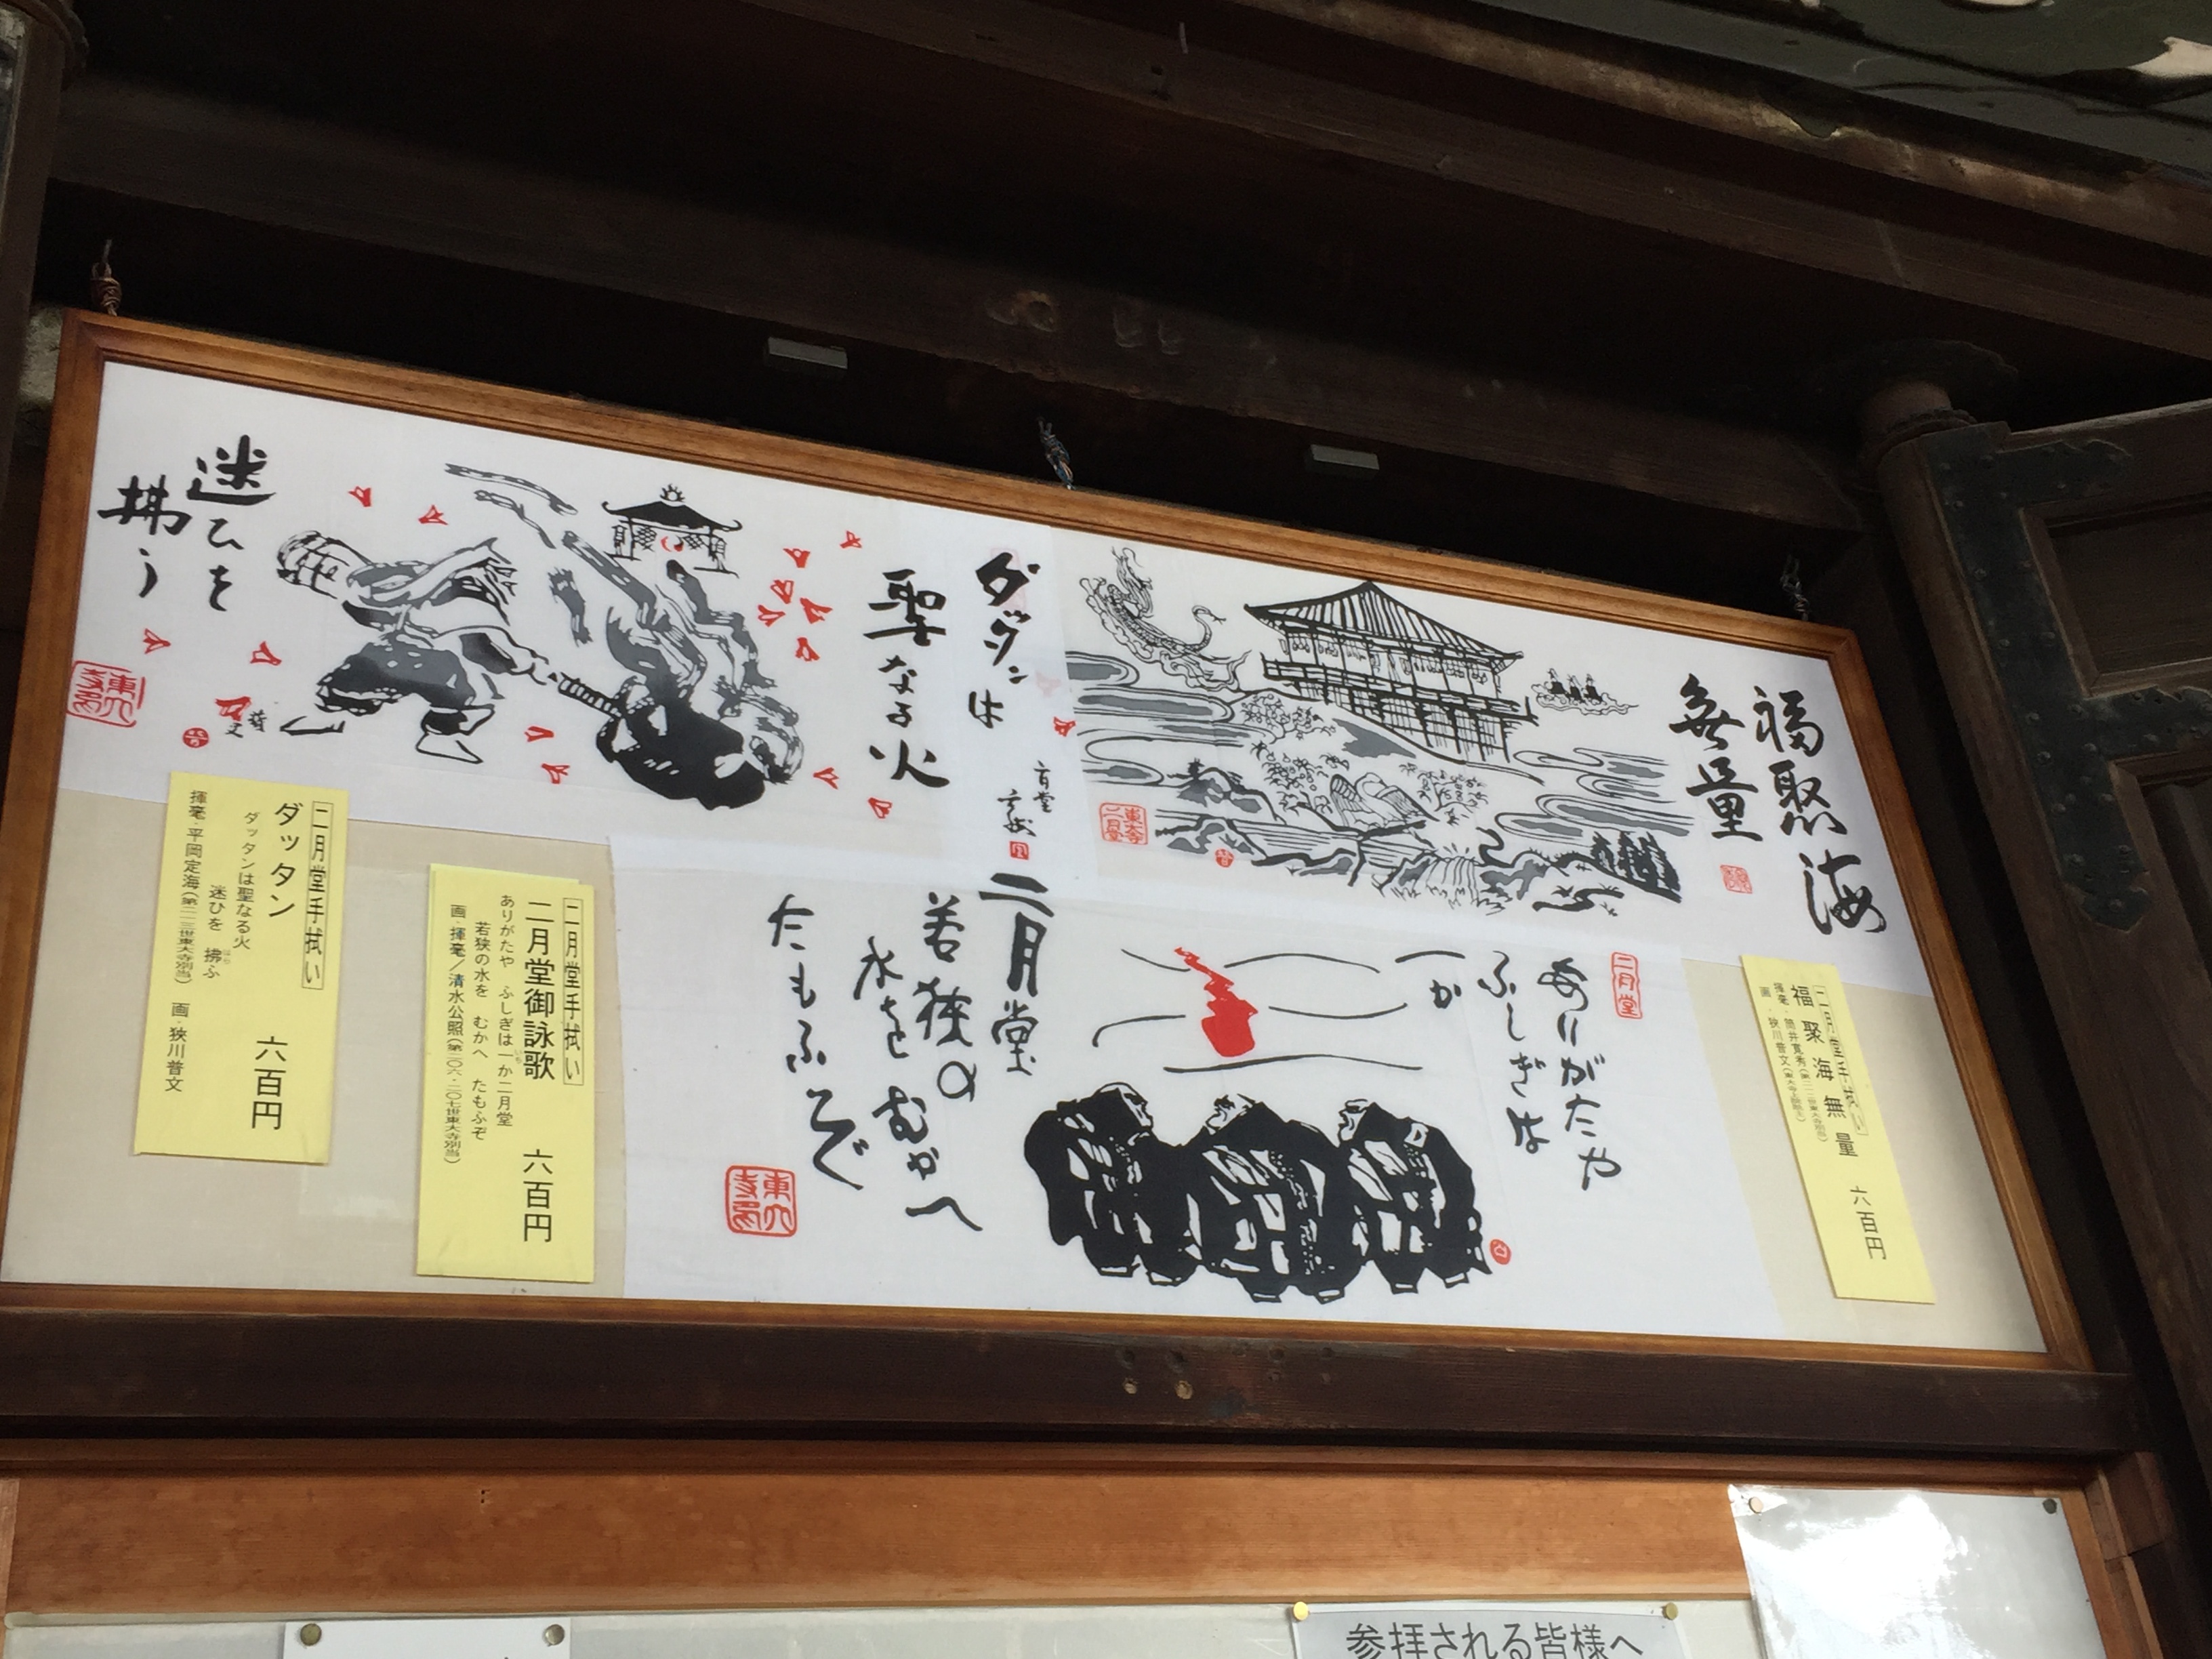 福聚海
無量
ダッタンは
聖なる火
迷ひを
拂う
二月堂
ありがたや
ふしぎは
一か
二月堂
若狭の
水を むかへ
たもふぞ
東大寺
二月堂
二月堂手拭い
福聚海無量 六百円
画・狭川普文
二月堂手拭い
二月堂御詠歌 六百円
ありがたや ふしぎは一か二月堂
若狭の水を むかへ たもふぞ
画・揮毫/清水公照(第二〇六・二〇七世東大寺別当)
二月堂手拭い
ダッタン 六百円
ダッタンは聖なる火
迷ひを 拂ふ
揮毫・平岡定海(第二一三世東大寺別当) 画・狭川普文
参拝される皆様へ